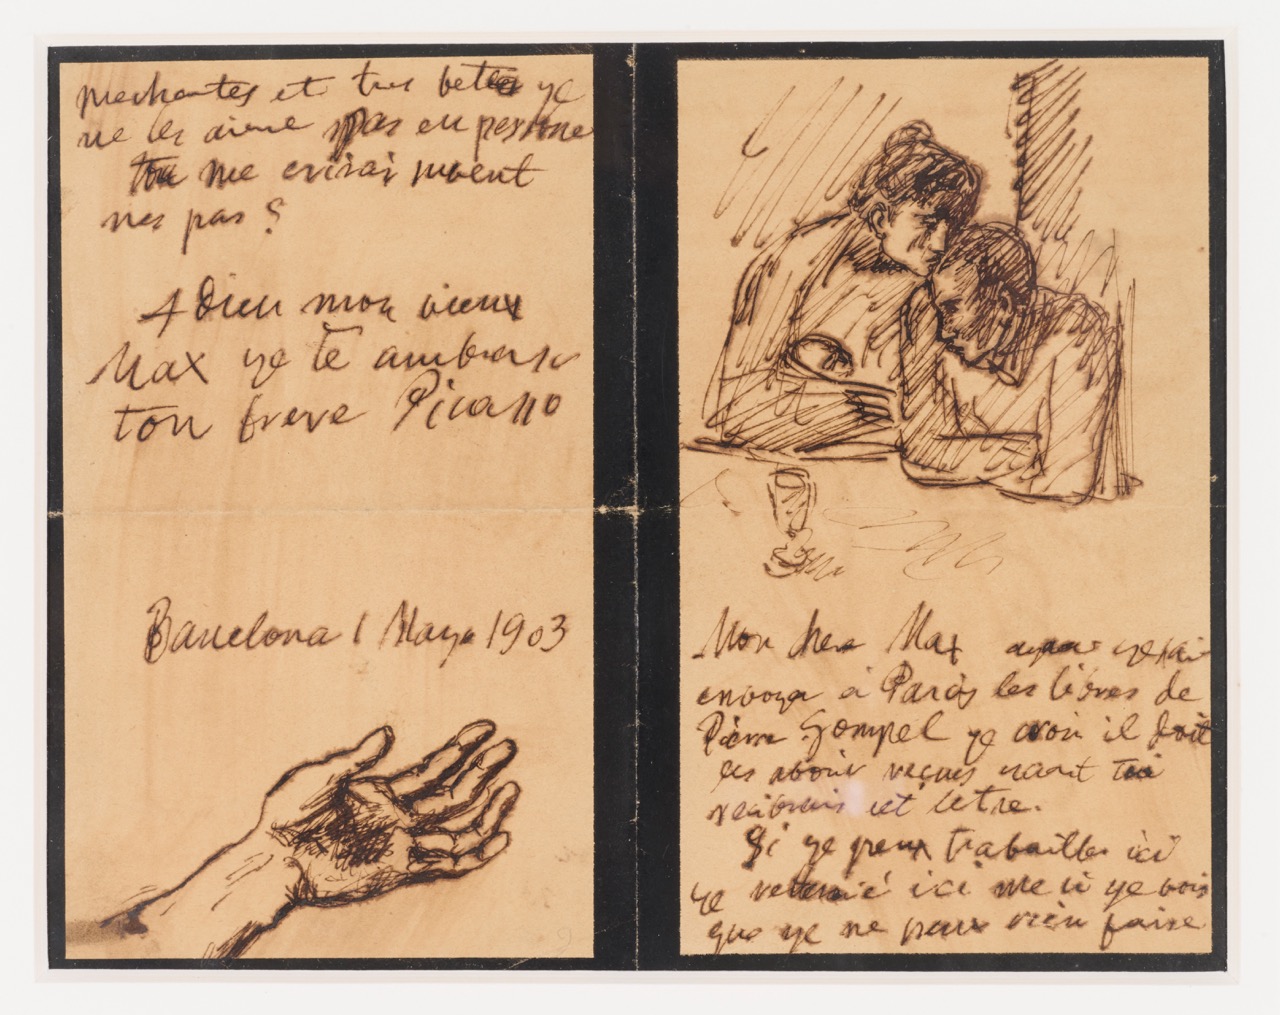 mechantes et tres betes ye
ne les aime pas en persone
tu me crirai muent
nes pas?
Adieu mon vieux
Max ye te ambrase
ton freve Picasso
Barcelona 1 Mayo 1903
Mon cher Max ye tai
envoya a Paris les livres de
Pierre Gompel ye croi il doit
les avoir reçus
cet letre.
Si ye peux trabailler ici
ye ici me si ye vois
que ye ne peux rien faire